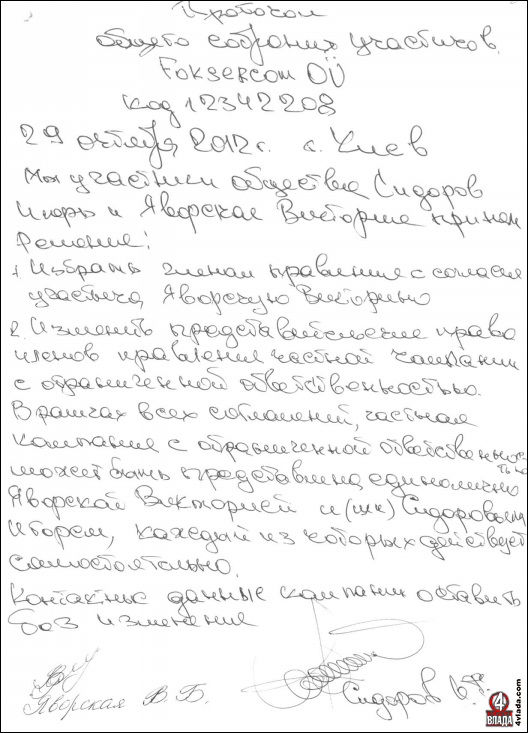 Протокол
общего собрания участников
Foksercom OÜ
Код 12342208
29 октября 2012г. г. Киев
Мы участники общества Сидоров
Игорь и Яворская Виктория приняли
решение:
1. Избрать членом правления с согласия
участника, Яворскую Викторию
2. Изменить представительские права
членов правления частной компании
с ограниченной ответственностью.
В рамках всех соглашений, частная
компания с ограниченной ответственностью
может быть представлена единолично
Яворской Викторией и (или) Сидоровым
Игорем, каждый из которых действует
самостоятельно.
Контактные данные компании оставить
без изменения
Яворская В. Б.
Сидоров
4 ВЛАДА
4vlada.com